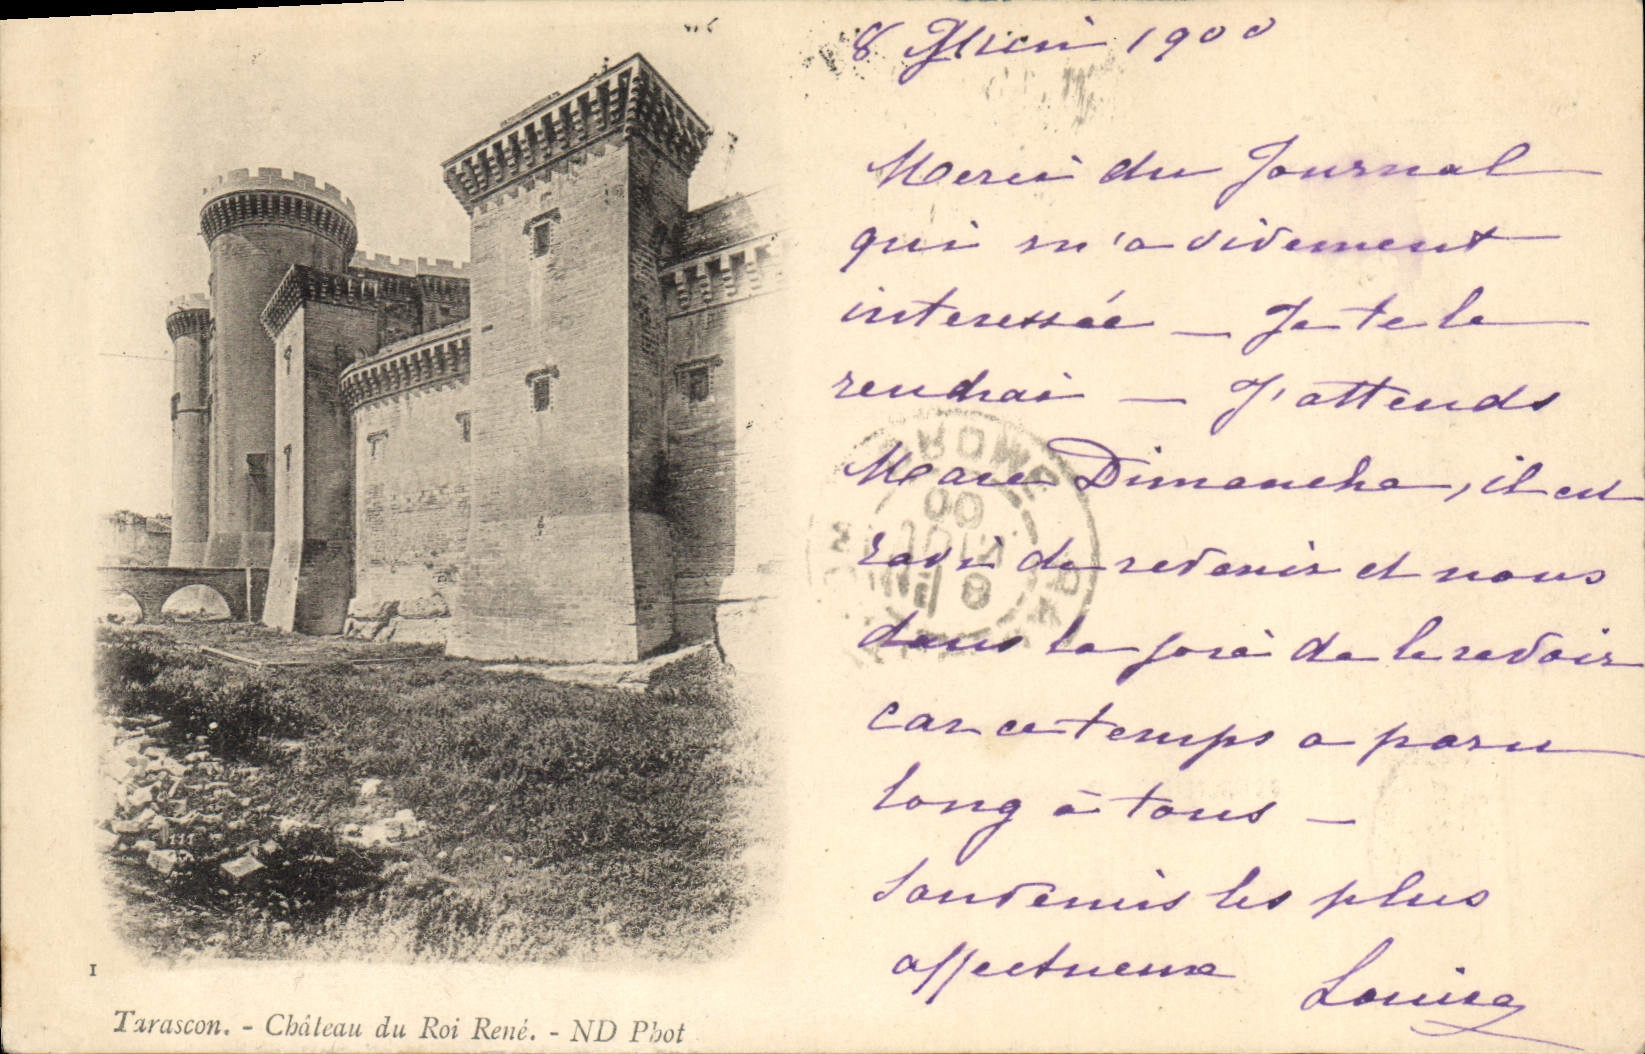 8 Juin 1900
Merci du Journal
qui m'a vivement
interessée — Je te le
rendrai — J'attends
Marc Dimanche, il est
ravi de revenir et nous
dans la joie de le revoir
car ce temps a paru
long à tous —
Souvenirs les plus
affectueux Louise
1
Tarascon. - Château du Roi René. - ND Phot